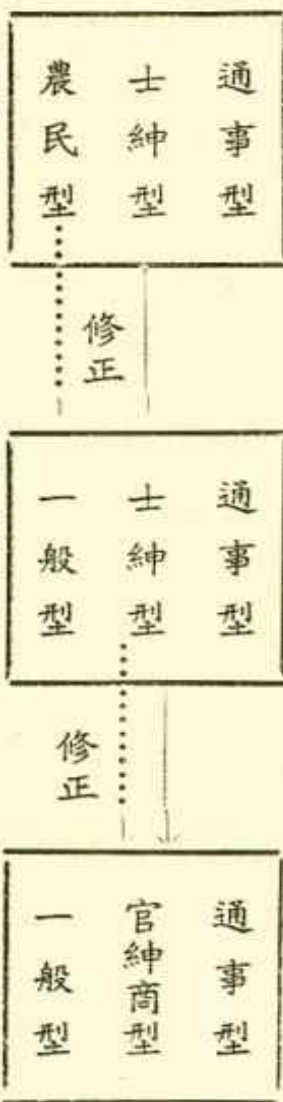 通事型
士紳型
農民型
修正
通事型
士紳型
一般型
修正
通事型
官紳商型
一般型